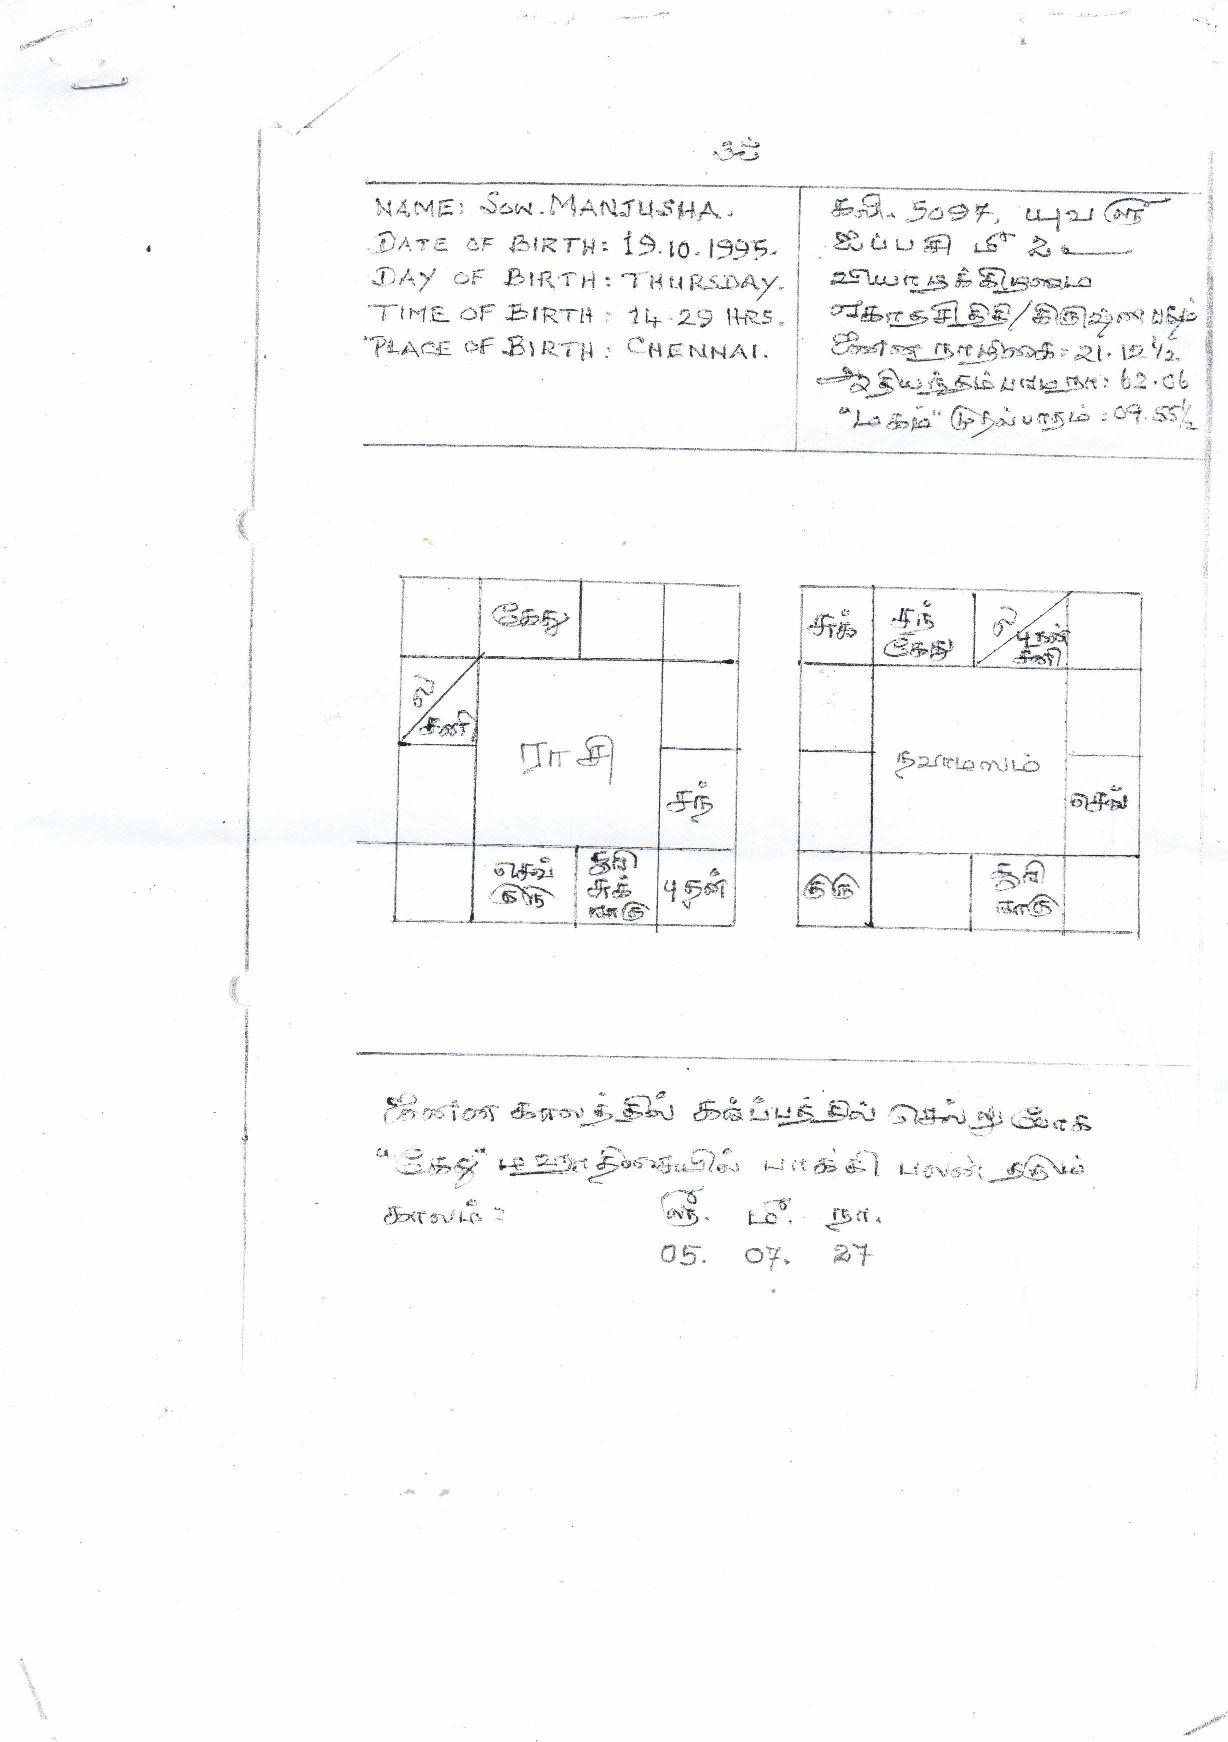 உ
NAME: Sow. MANJUSHA.
DATE OF BIRTH: 19.10.1995.
DAY OF BIRTH: THURSDAY.
TIME OF BIRTH: 14-29 HRS.
PLACE OF BIRTH: CHENNAI.
கலி. 5097, யுவ ௵
ஐப்பசி ௴ 2 உ
வியாழக்கிழமை
ஏகாதசி திதி/கிருஷ்ண பக்ஷம்
ஜனன நாழிகை: 21.12½
ஆதியந்தம் பரம நா: 62.06
"மகம்" முதல்பாதம்: 09.55½
கேது
ல
சனி
ராசி
சந்
செவ்
குரு
சூரி
சுக்
ராகு
புதன்
சுக்
சந்
கேது
ல
புதன்
சனி
நவாம்ஸம்
செவ்
குரு
சூரி
ராகு
ஜனன காலத்தில் கர்ப்பத்தில் சென்று போக
"கேது" மஹா திசையில் பாக்கி பலன் தரும்
காலம்: ௵. ௴. நா.
05. 07. 27